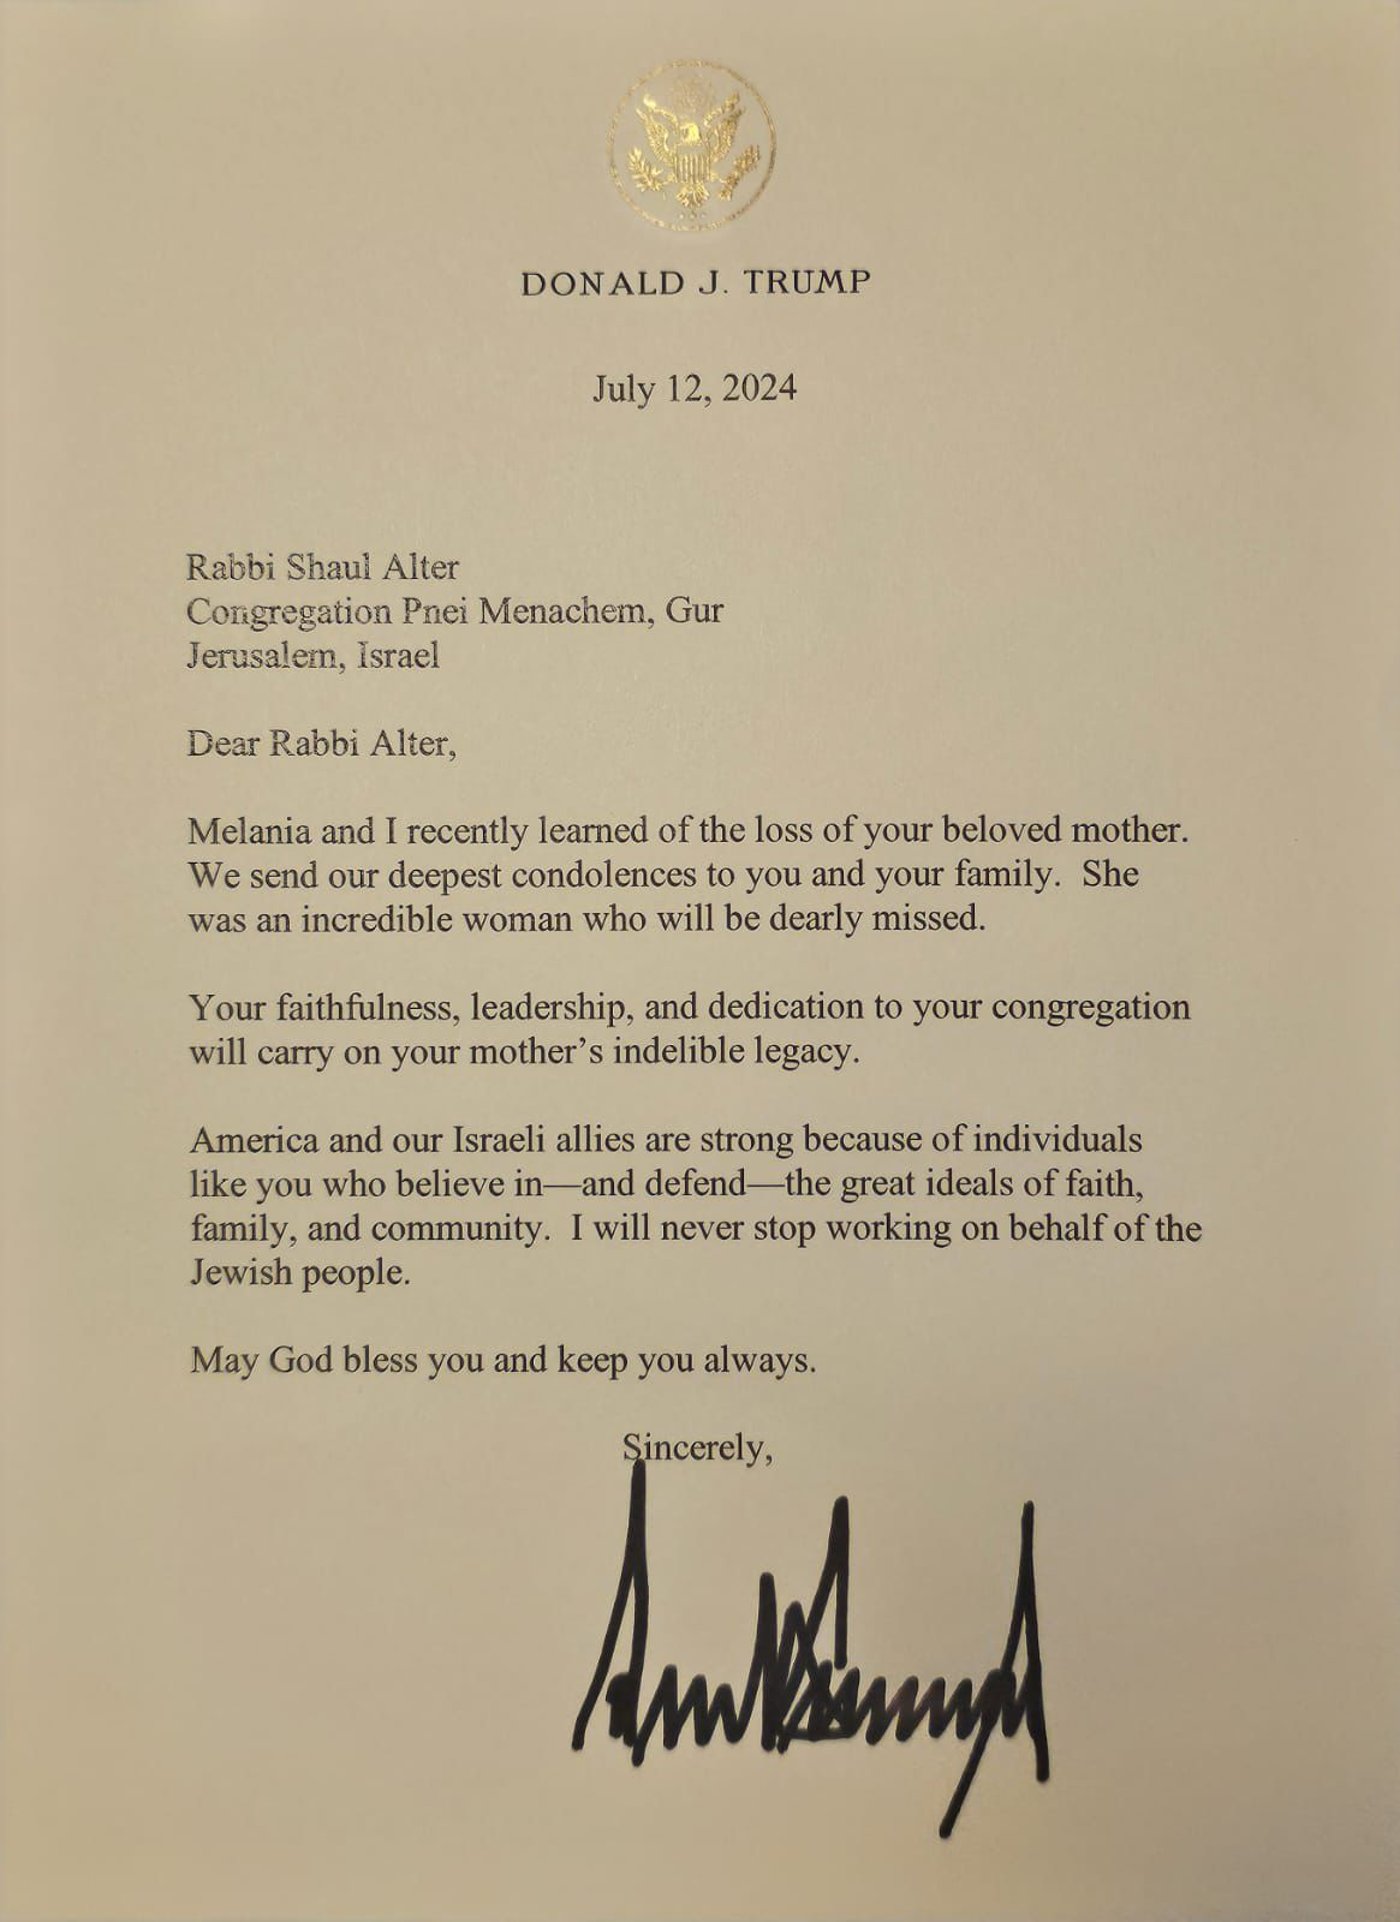 DONALD J. TRUMP
July 12, 2024
Rabbi Shaul Alter
Congregation Pnei Menachem, Gur
Jerusalem, Israel
Dear Rabbi Alter,
Melania and I recently learned of the loss of your beloved mother.
We send our deepest condolences to you and your family.  She
was an incredible woman who will be dearly missed.
Your faithfulness, leadership, and dedication to your congregation
will carry on your mother’s indelible legacy.
America and our Israeli allies are strong because of individuals
like you who believe in—and defend—the great ideals of faith,
family, and community.  I will never stop working on behalf of the
Jewish people.
May God bless you and keep you always.
Sincerely,